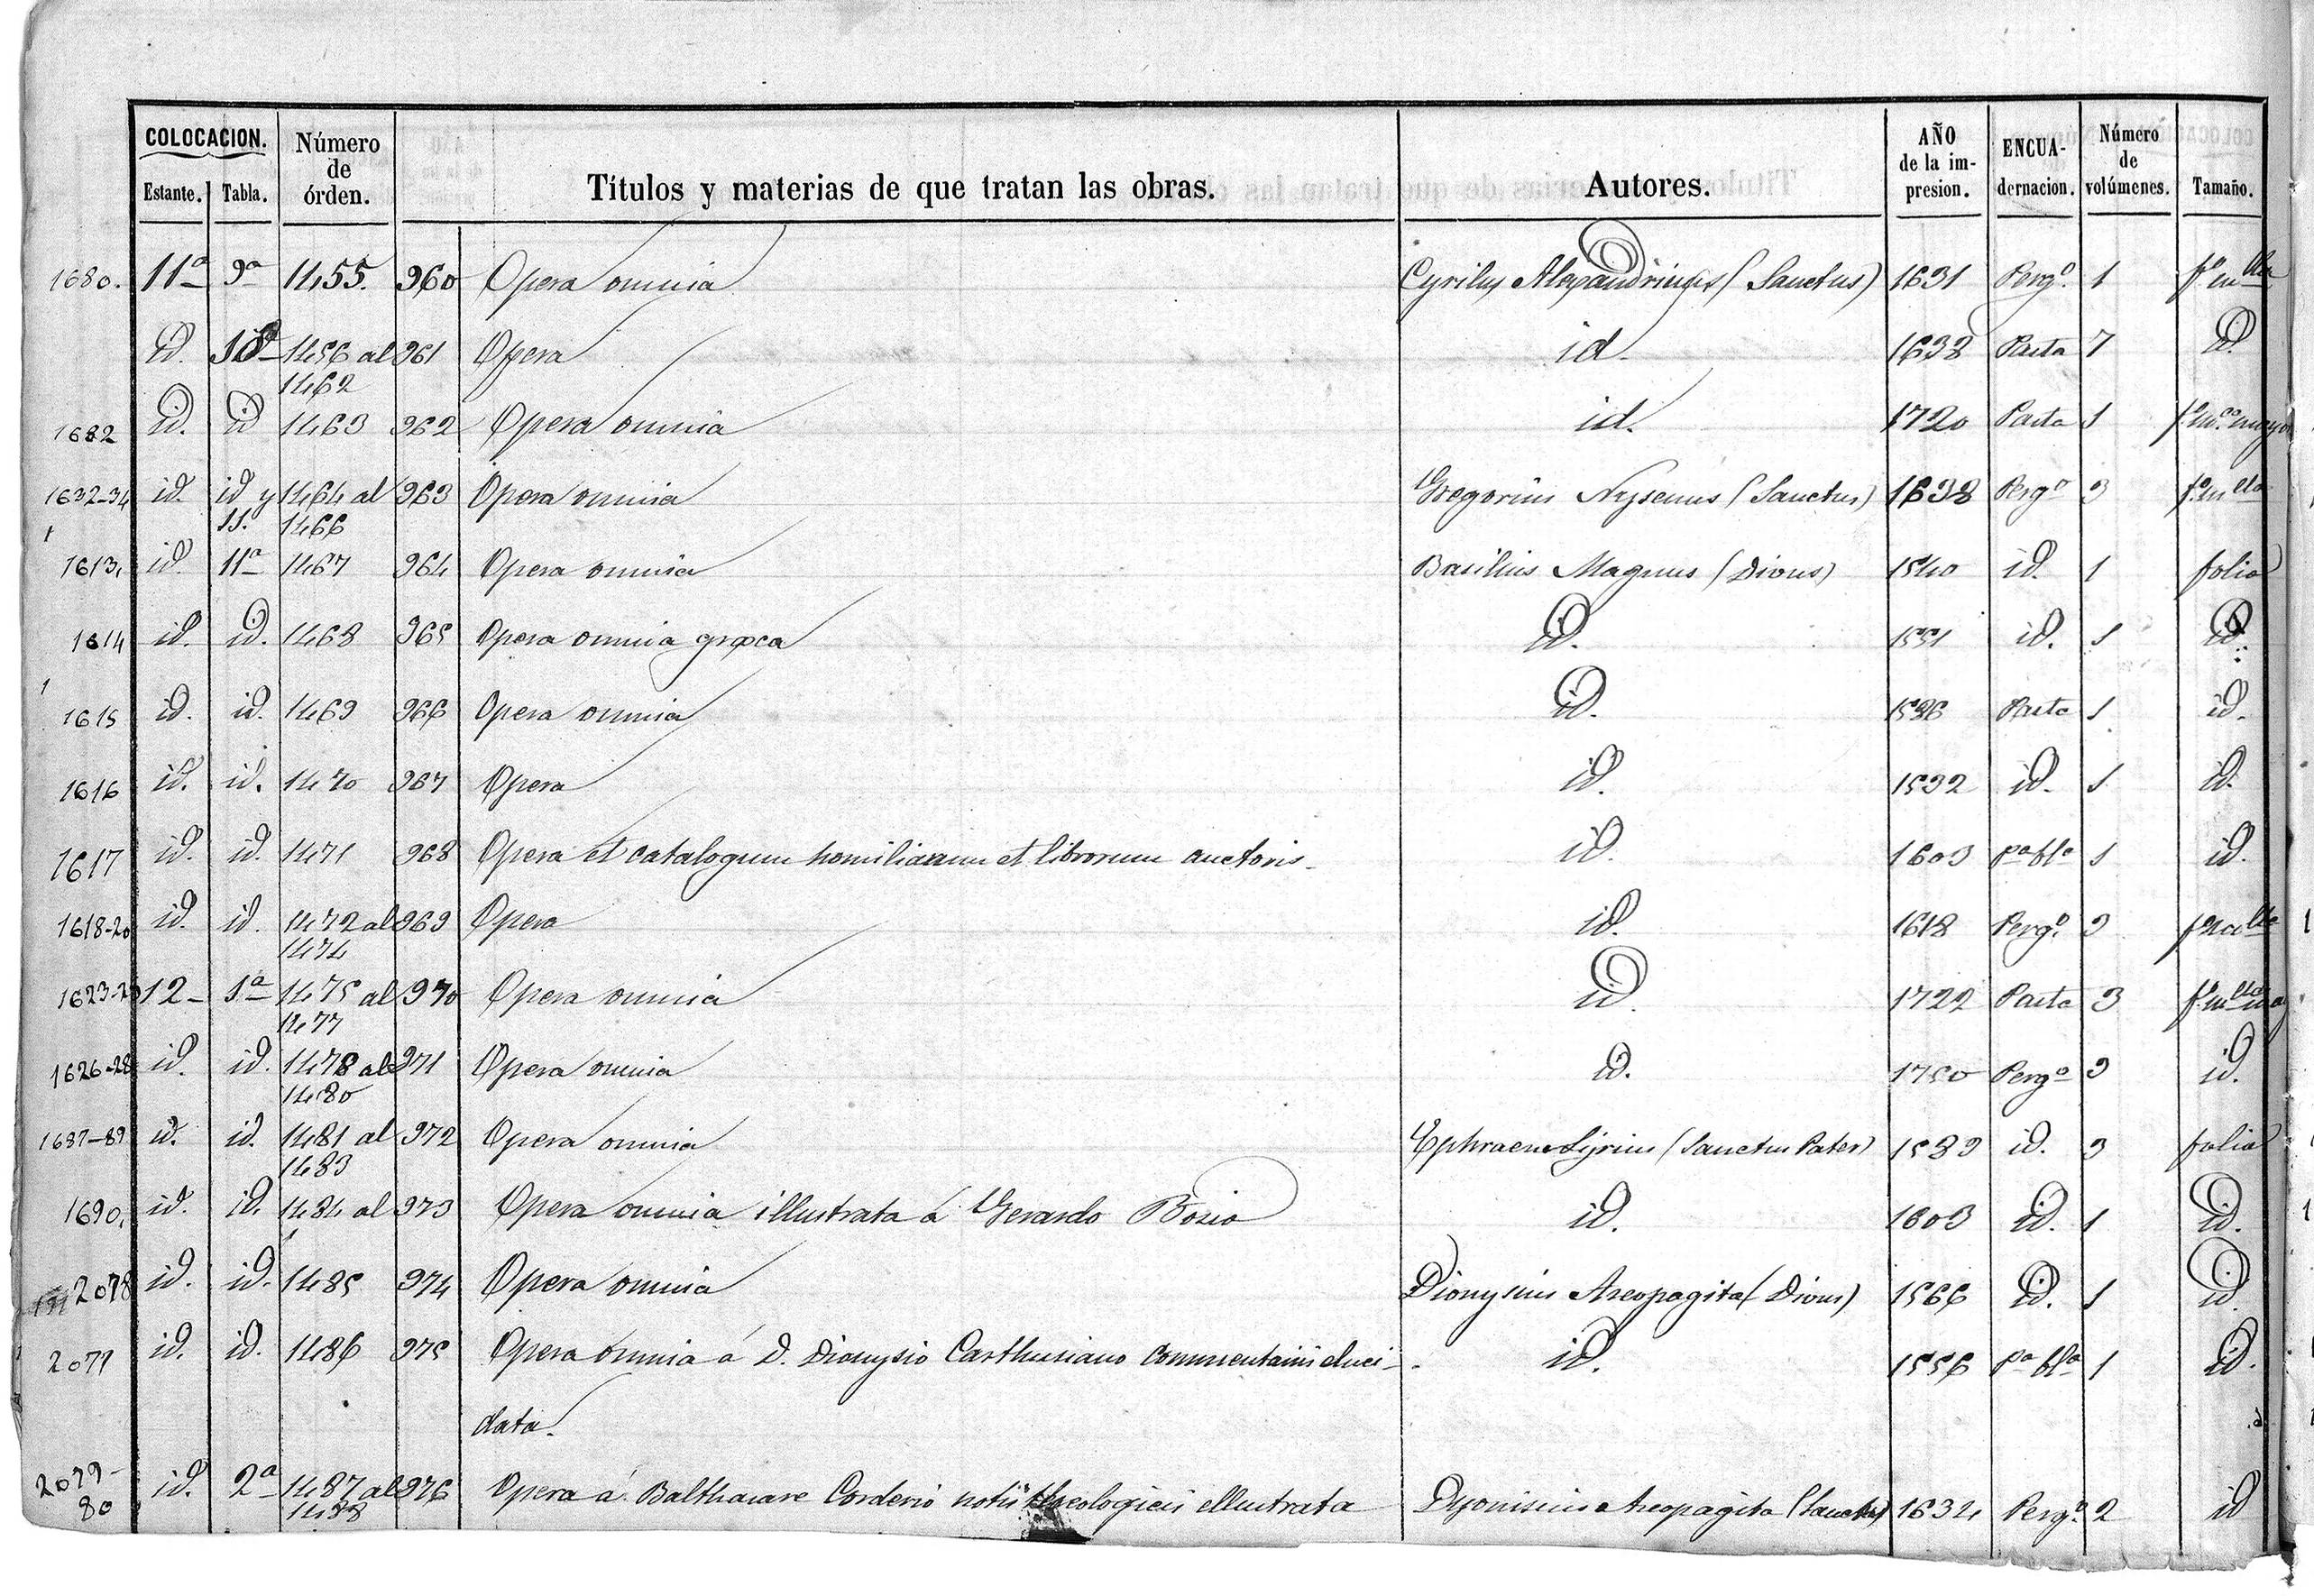 COLOCACION. Número de órden. Títulos y materias de que tratan las obras. Autores. AÑO de la impresion. ENCUADERNACION. Número de volúmenes. Tamaño.
Estante. Tabla.
1680. 11ª 9ª 1455. 960 Opera omnia Cyrilus Alexandrinus (Sanctus) 1631 Pergº. 1 fº mlla
id. 10ª 1456 al 961 Opera id. 1638 Pasta 7 id.
1462
1682 id. id 1463 962 Opera omnia id. 1720 Pasta 1
1632-34 id. id y 1464 al 963 Opera omnia Gregorius Nysenus (Sanctus) 1638 Pergº 3 fº mlla
11. 1466
1613. id. 11ª 1467 964 Opera omnia Basilius Magnus (Divus) 1540 id. 1 folio
1614 id. id. 1468 965 Opera omnia græca id. 1551 id. 1 id.
1615 id. id. 1469 966 Opera omnia id. Pasta 1 id.
1616 id. id. 1470 967 Opera id. 1532 id. 1 id.
1617 id. id. 1471 968 Opera et catalogum homiliarum et librorum auctoris id. 1603 pª blª 1 id.
1618-20 id. id. 1472 al 969 Opera id. 1618 Pergº. 3
1474
1623-25 12 1ª 1475 al 970 Opera omnia id. 1722 Pasta 3
1477
1626-28 id. id. 1478 al 971 Opera omnia id. 1750 Pergº 3 id.
1480
1687-89 id. id. 1481 al 972 Opera omnia Ephraem Sÿrius (Sanctus Pater) 1589 id. 3 folio
1483
1690. id. id. 1484 al 973 Opera omnia illustrata á Gerardo Bosio id. 1603 id. 1 id.
2078 id. id. 1485 974 Opera omnia Dionysius Areopagita (Divus) 1566 id. 1 id.
2079 id. id. 1486 975 Opera omnia á D. Dionysio Carthusiano commentariis eluci- id. 1556 pª blª 1 id.
data.
2079- id. 2ª 1487 al 976 Opera á Balthasare Corderio notis theologicis ellustrata Dyonisius Areopagita (Sanctus) 1634 Pergº. 2 id
80 1488